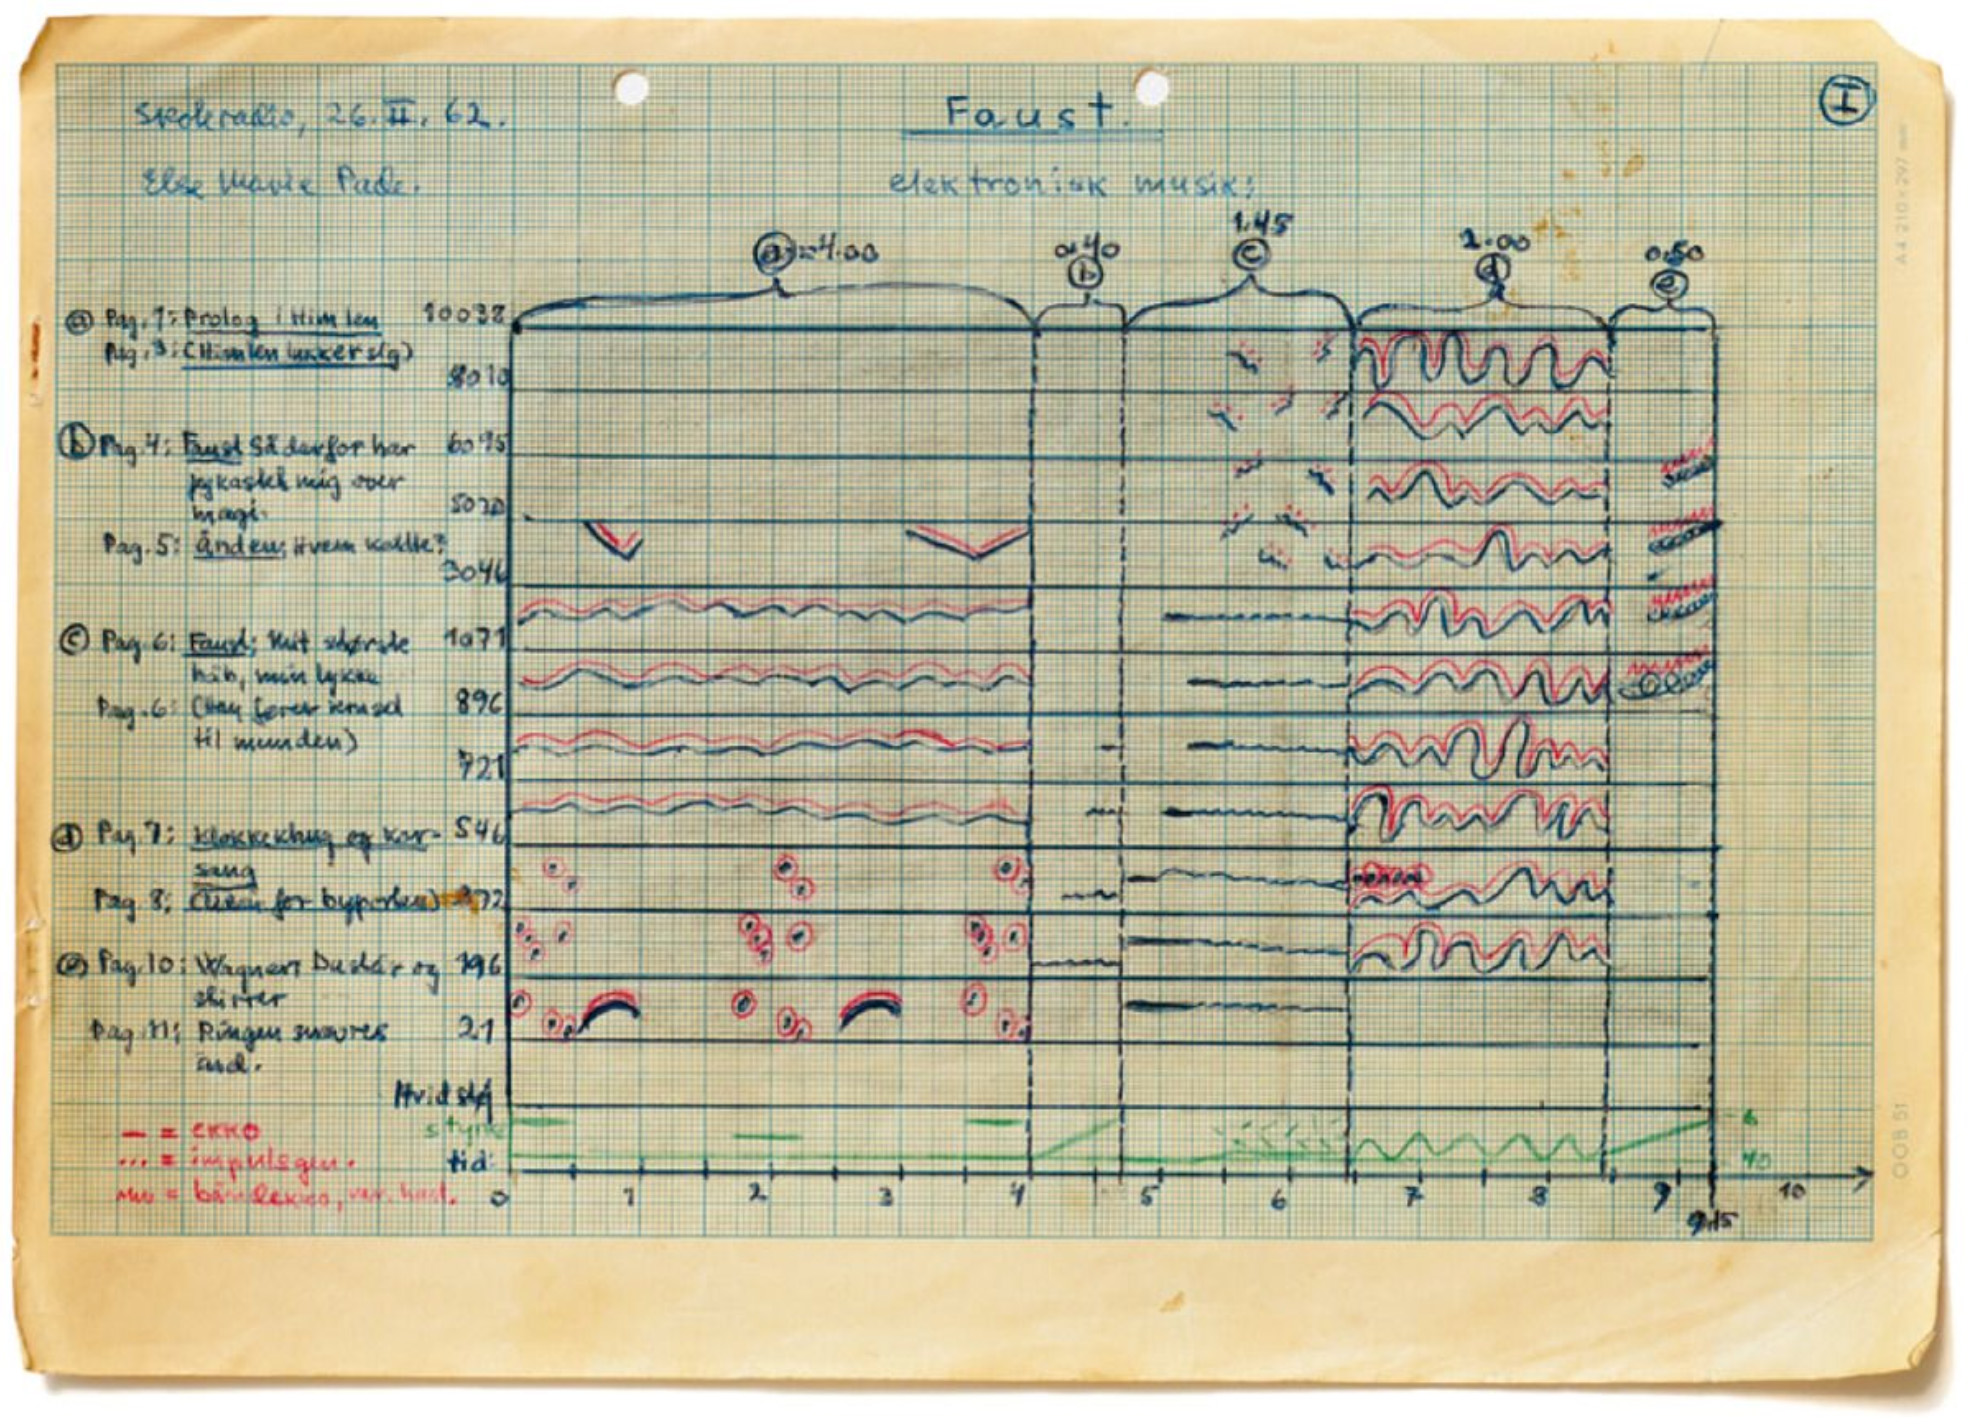 Skoleradio, 26. II. 62.
Faust.
I
Else Marie Pade.
elektronisk musik:
a = 4.00
0.40
b
1.45
c
2.00
d
0.50
e
a Pag. 1: Prolog i Himlen
Pag. 3: (Himlen lukker sig)
b Pag. 4: Faust Så derfor har
jeg kastet mig over
magi.
Pag. 5: Ånden: Hvem kaldte?
c Pag. 6: Faust: Mit største
håb, min lykke
Pag. 6: (Han fører
til munden)
d Pag. 7: Klokkeklang og kor-
sang
Pag. 8: for byporten)
e Pag. 10: Wagner: Du står og
stirrer
Pag. 11: Ringen snævres
ind.
10038
8010
6095
5020
3046
1071
896
721
546
372
196
21
Hvid støj
styrke
tid:
— = ekko
... = impulsgen.
= båndekko, var. hast.
0 1 2 3 4 5 6 7 8 9 10
9.15
- 6
- 40
A4 210 x 297 mm
OOB 51